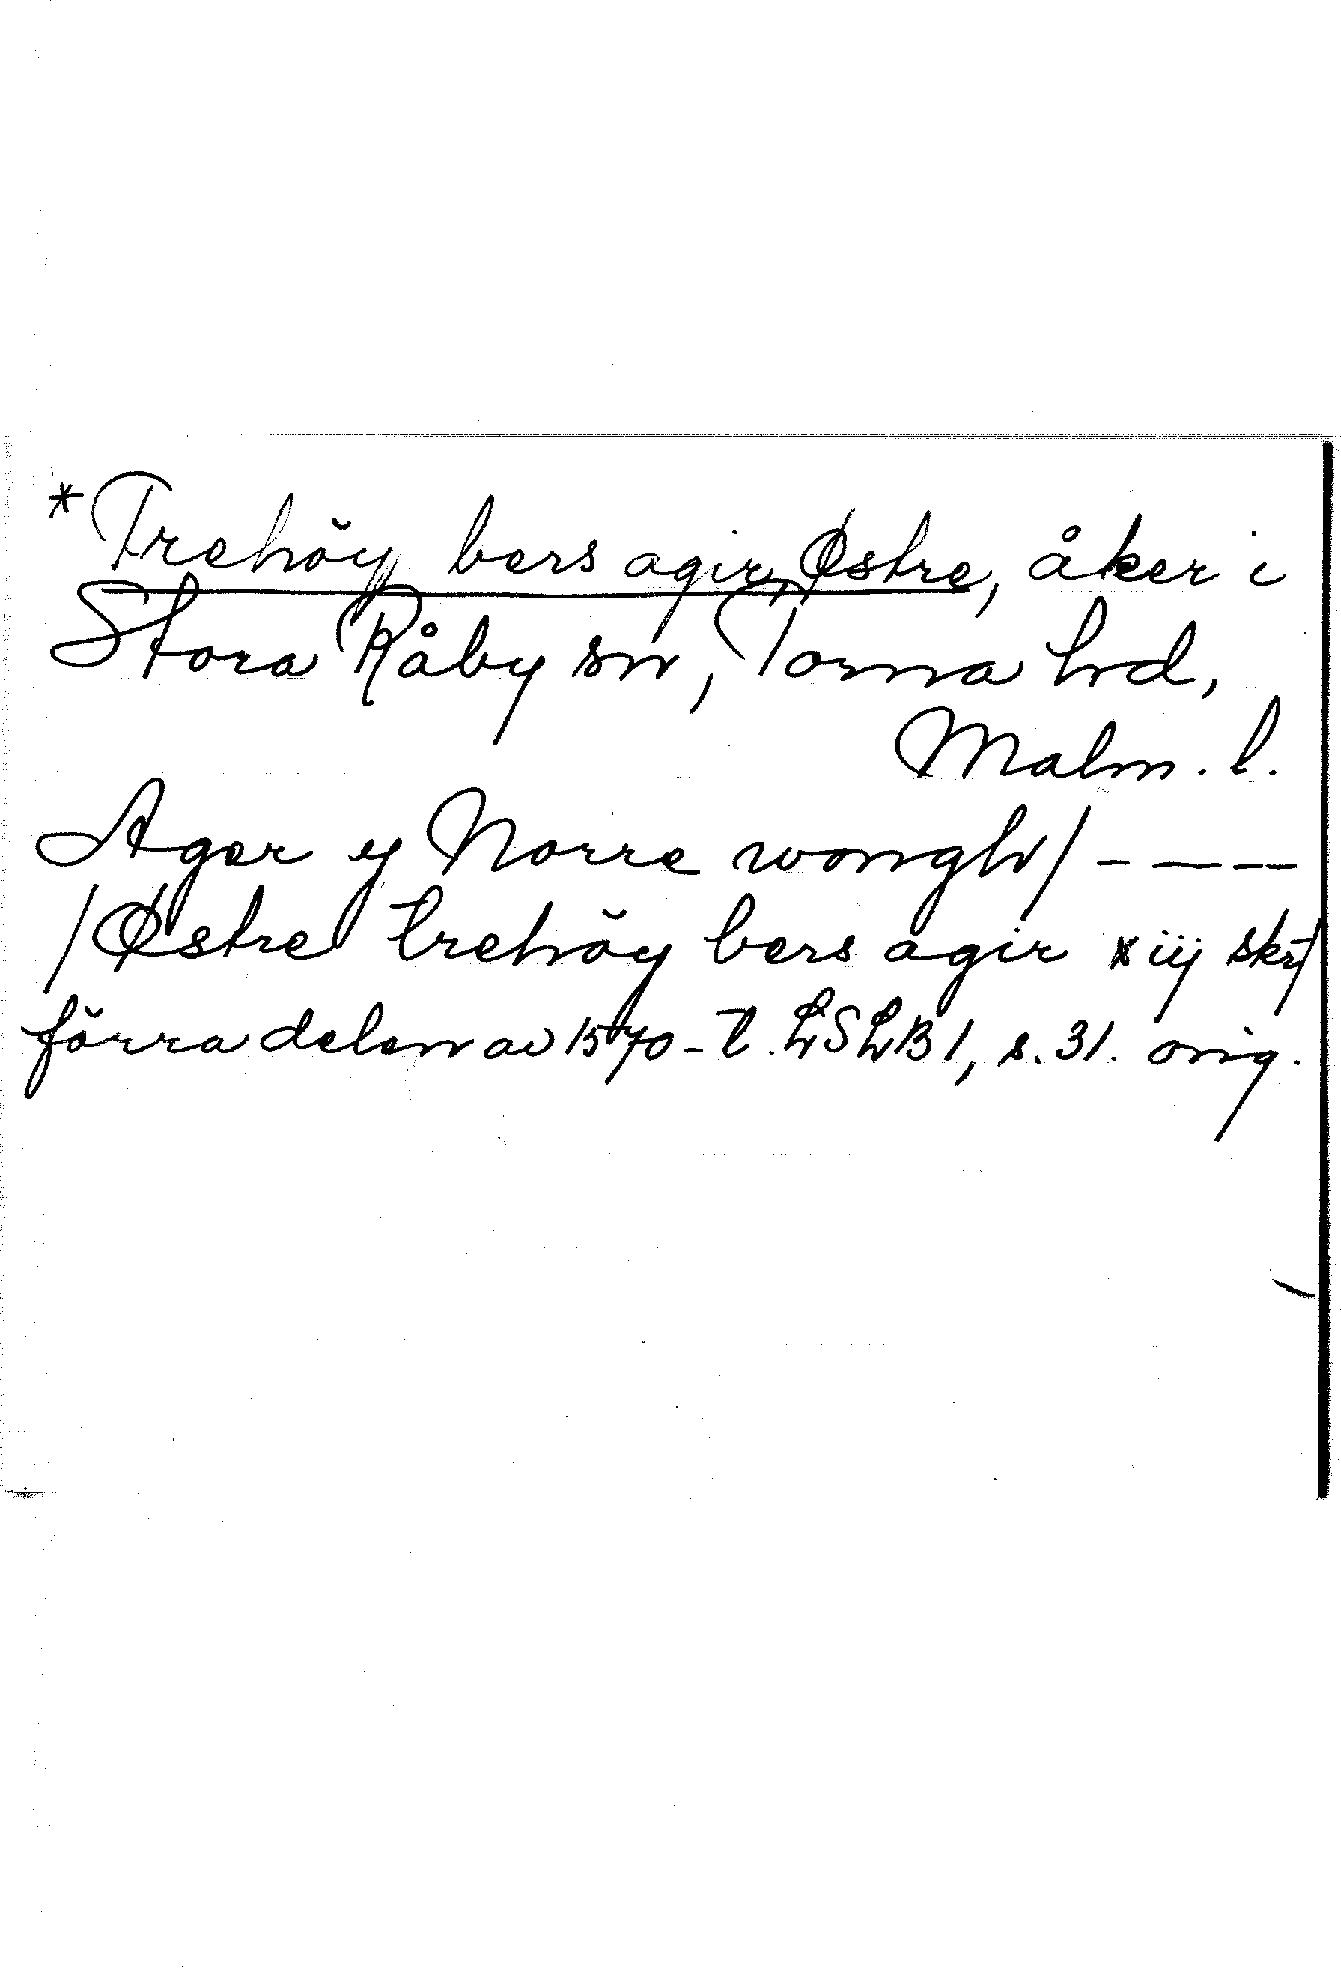 *Trehöy bers agir, Østre, åker i
Stora Råby sn, Torna hd,
Malm. l.
Ager y Norre wongh/ - — — —
/Østre trehöy bers agir xiij skr/
förra delen av 1570-t. LSLB 1, s. 31. orig.